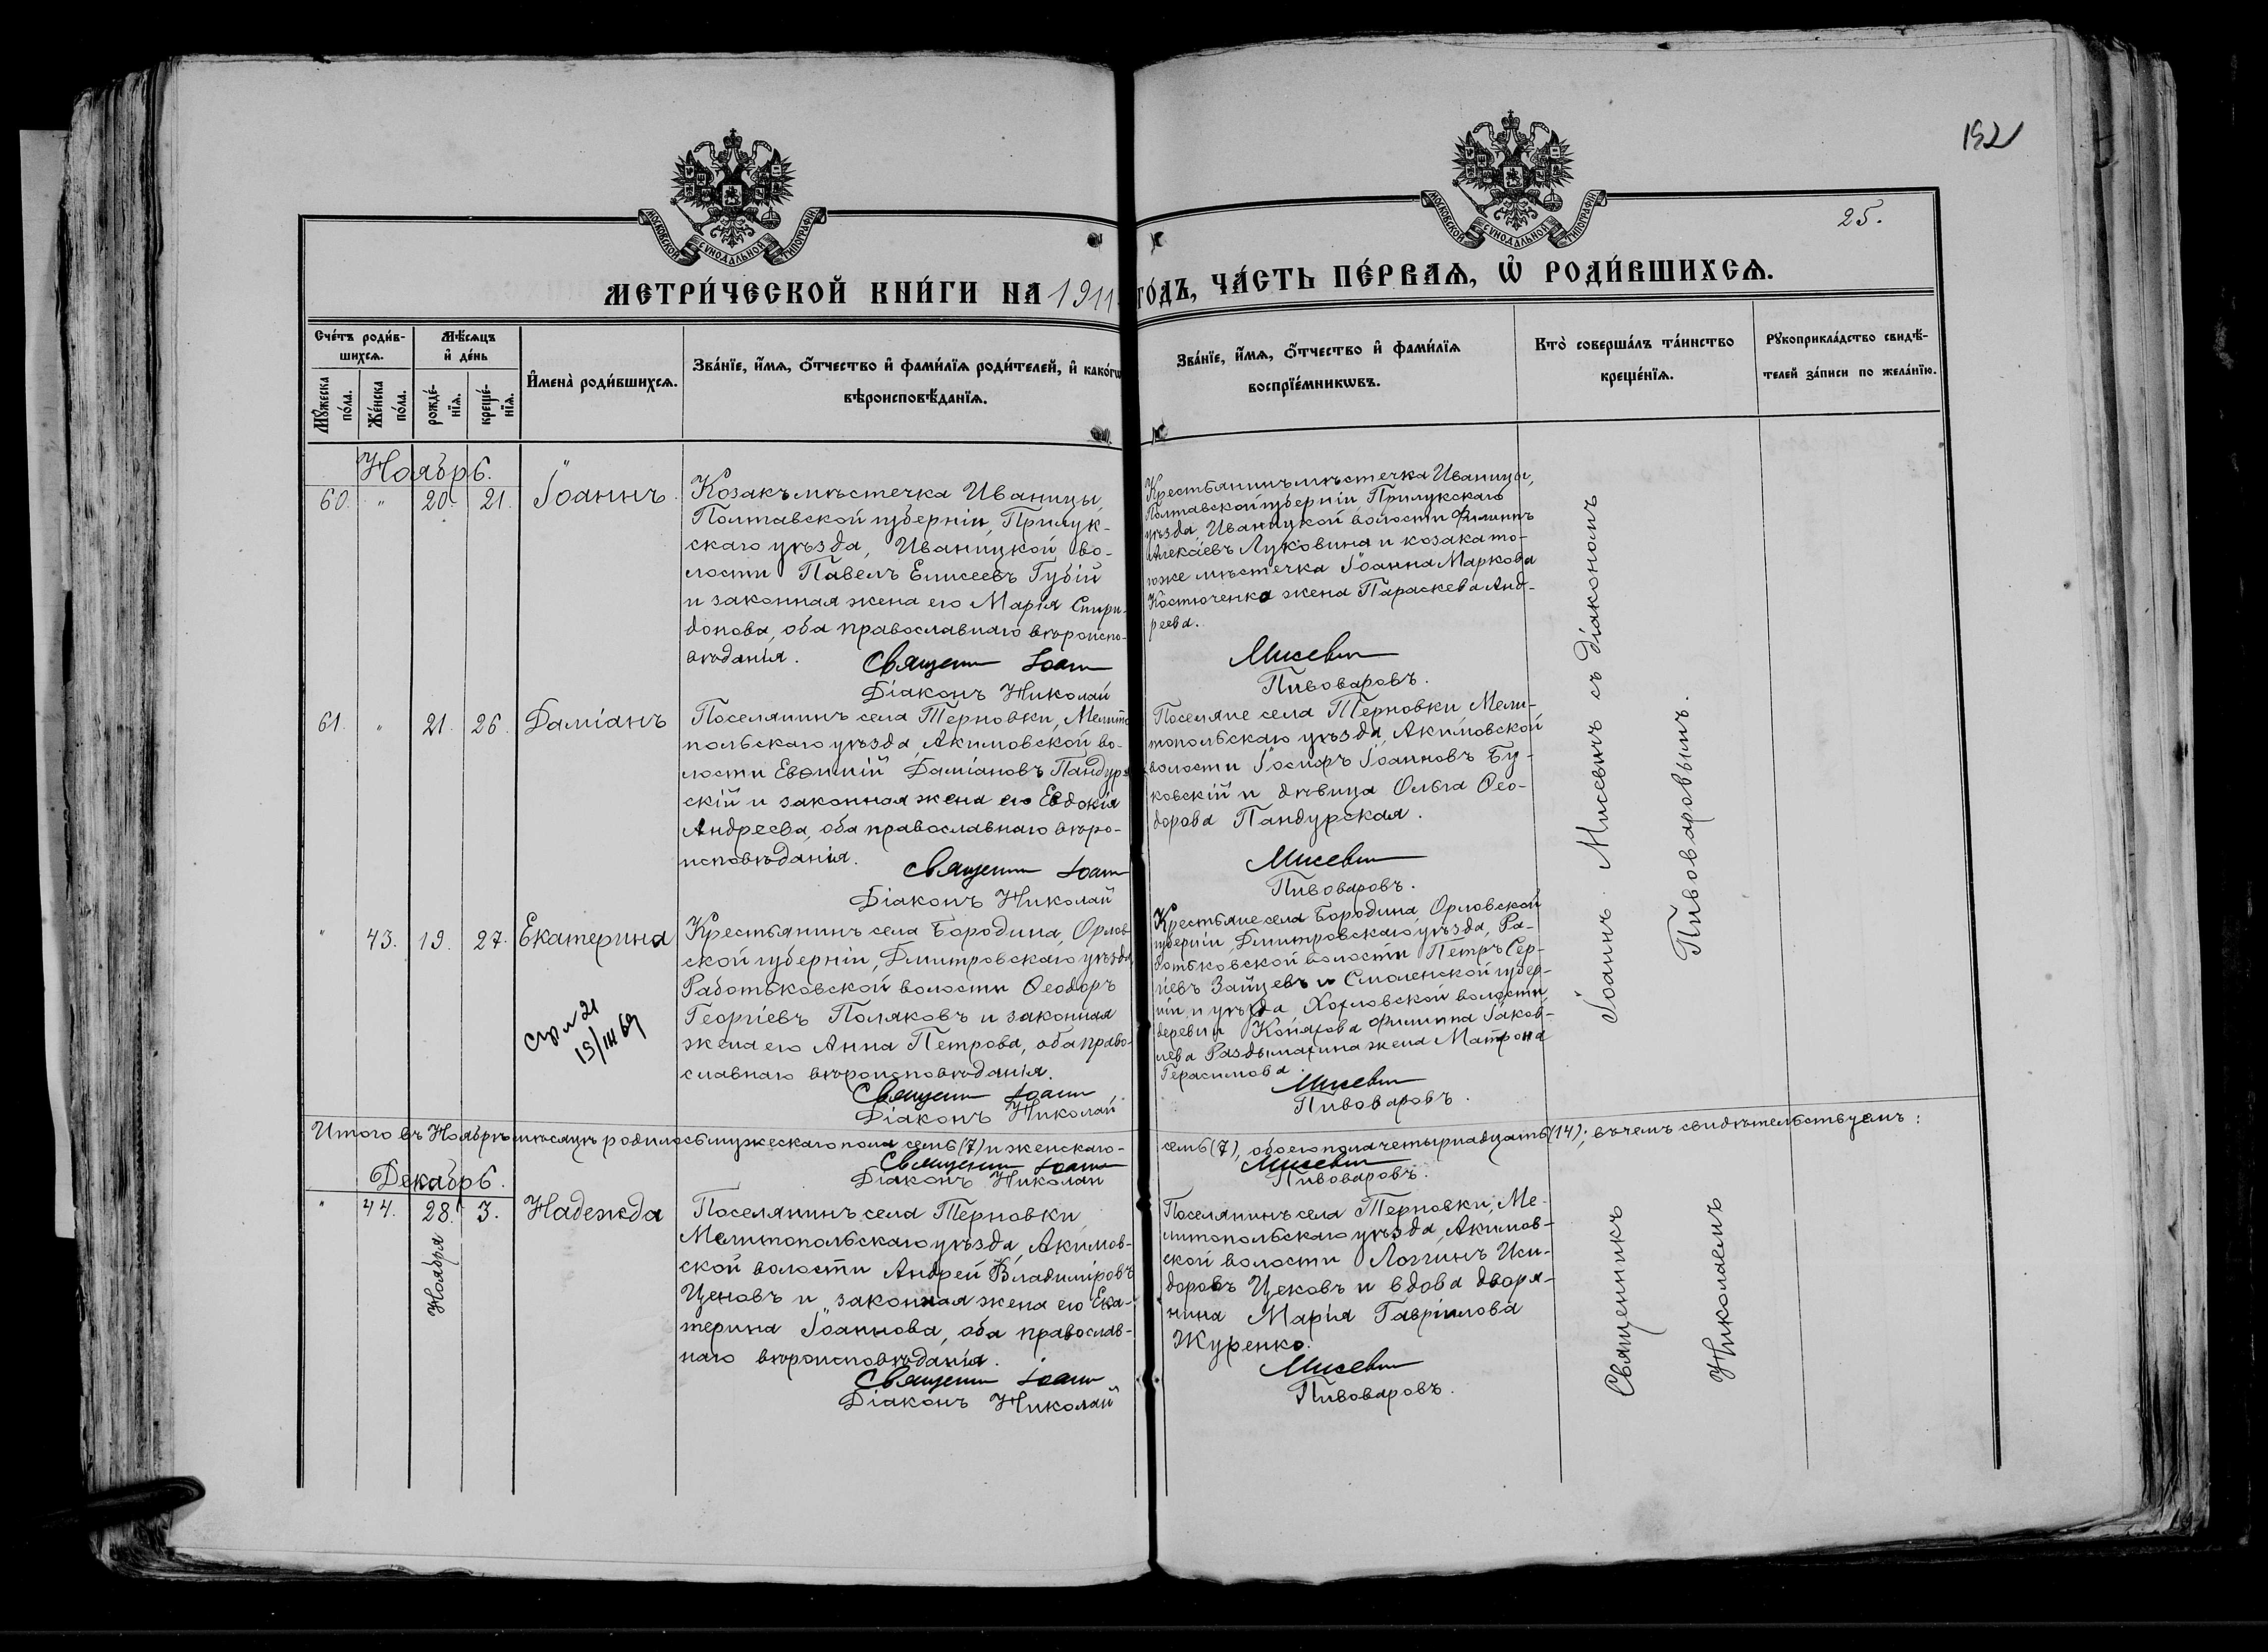 192
25.
МОСКОВСКОЙ СУНОДАЛЬНОЙ ТИПОГРАФІИ
МОСКОВСКОЙ СУНОДАЛЬНОЙ ТИПОГРАФІИ
МЕТРИ́ЧЕСКОЙ КНИ́ГИ НА 1911 ГО́ДЪ, ЧА́СТЬ ПЕ́РВАѦ, Ѡ҆ РОДИ́ВШИХСѦ.
Сче́тъ роди́в-
шихсѧ.
Мꙋ́жеска по́ла.
Же́нска по́ла.
Мѣ́сѧцъ и҆ де́нь
рожде́-
нїѧ.
креще́-
нїѧ.
И҆мена̀ роди́вшихсѧ.
Зва́нїе, и҆́мѧ, ѻ҆́тчество и҆ фами́лїѧ роди́телей, и҆ како́гѡ
вѣроисповѣ́данїѧ.
Зва́нїе, и҆́мѧ, ѻ҆́тчество и҆ фами́лїѧ
воспрїе́мникѡвъ.
Кто̀ соверша́лъ та́инство
креще́нїѧ.
Рꙋкоприкла́дство свидѣ́-
телей за́писи по жела́нїю.
Ноябрь.
60. " 20. 21. Іоаннъ.
Козакъ мѣстечка Иваницы,
Полтавской губерніи, Прилук-
скаго уѣзда, Иваницкой во-
лости Павелъ Елисеевъ Губій
и законная жена его Марія Спири-
донова, оба православнаго вѣроиспо-
вѣданія.
Священн Іоанн
Діаконъ Николай
Крестьянинъ мѣстечка Иваницы,
Полтавской губерніи Прилукскаго
уѣзда, Иваницкой волости Филиппъ
Алексіевъ Луковина и козака то-
гоже мѣстечка Іоанна Маркова
Костюченка жена Параскева Анд-
реева.
Мисевич
Пивоваровъ.
61. " 21. 26. Даміанъ
Поселянинъ села Терновки, Мелито-
польскаго уѣзда, Акимовской во-
лости Евѳимій Даміановъ Пандур-
скій и законная жена его Евдокія
Андреева, оба православнаго вѣро-
исповѣданія.
Священн Іоанн
Діаконъ Николай
Поселяне села Терновки Мели-
топольскаго уѣзда, Акимовской
волости Іосифъ Іоанновъ Бу-
ковскій и дѣвица Ольга Ѳео-
дорова Пандурская.
Мисевич
Пивоваровъ.
" 43. 19. 27. Екатерина
15/III 69
Крестьянинъ села Бородина, Орлов-
ской губерніи, Дмитровскаго уѣзда
Работьковской волости Ѳеодоръ
Георгіевъ Поляковъ и законная
жена его Анна Петрова, оба право-
славнаго вѣроисповѣданія.
Священн Іоанн
Діаконъ Николай
Крестьяне села Бородина, Орловской
губерніи, Дмитровскаго уѣзда, Ра-
ботьковской волости Петръ Сер-
гіевъ Зайцевъ и Смоленской губер-
ніи и уѣзда, Хохловской волости,
деревни Филиппа Іаков-
лева жена Матрона
Герасимова.
Мисевич
Пивоваровъ.
Іоаннъ Мисевичъ съ діакономъ
Пивоваровымъ.
Итого въ Ноябрѣ мѣсяцѣ родилось мужескаго пола семь (7) и женскаго- семь (7), обоего пола четырнадцать (14); въ чемъ свидѣтельствуемъ:
Священн Іоанн Мисевич
Діаконъ Николай Пивоваровъ.
Декабрь.
" 44. 28. 3. Надежда
Ноября
Поселянинъ села Терновки,
Мелитопольскаго уѣзда, Акимов-
ской волости Андрей Владиміровъ
Цековъ и законная жена его Ека-
терина Іоаннова, оба православ-
наго вѣроисповѣданія.
Священн Іоанн
Діаконъ Николай
Поселянинъ села Терновки, Ме-
литопольскаго уѣзда, Акимов-
ской волости Логгинъ Иси-
доровъ Цековъ и вдова дворя-
нина Марія Гавріилова
Журенко.
Мисевич
Пивоваровъ.
Священникъ
Николаемъ